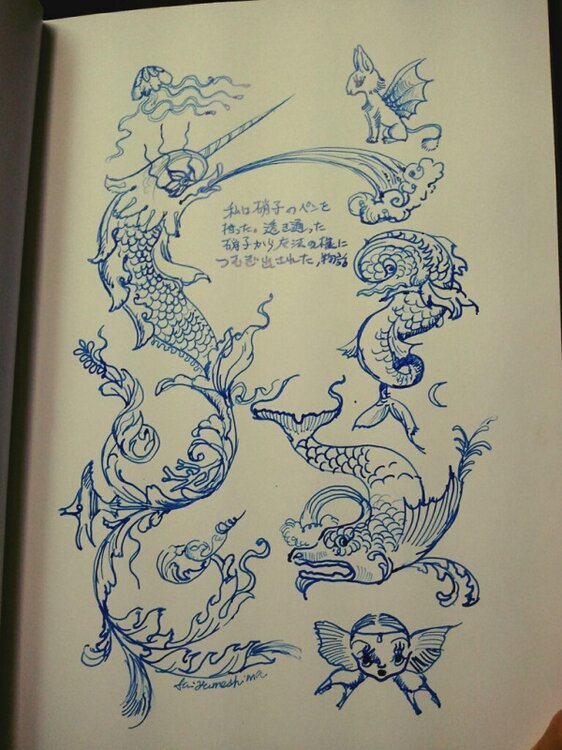 私は硝子のペンを
拾った。透き通った
硝子から魔法の様に
つむぎ出された、物語